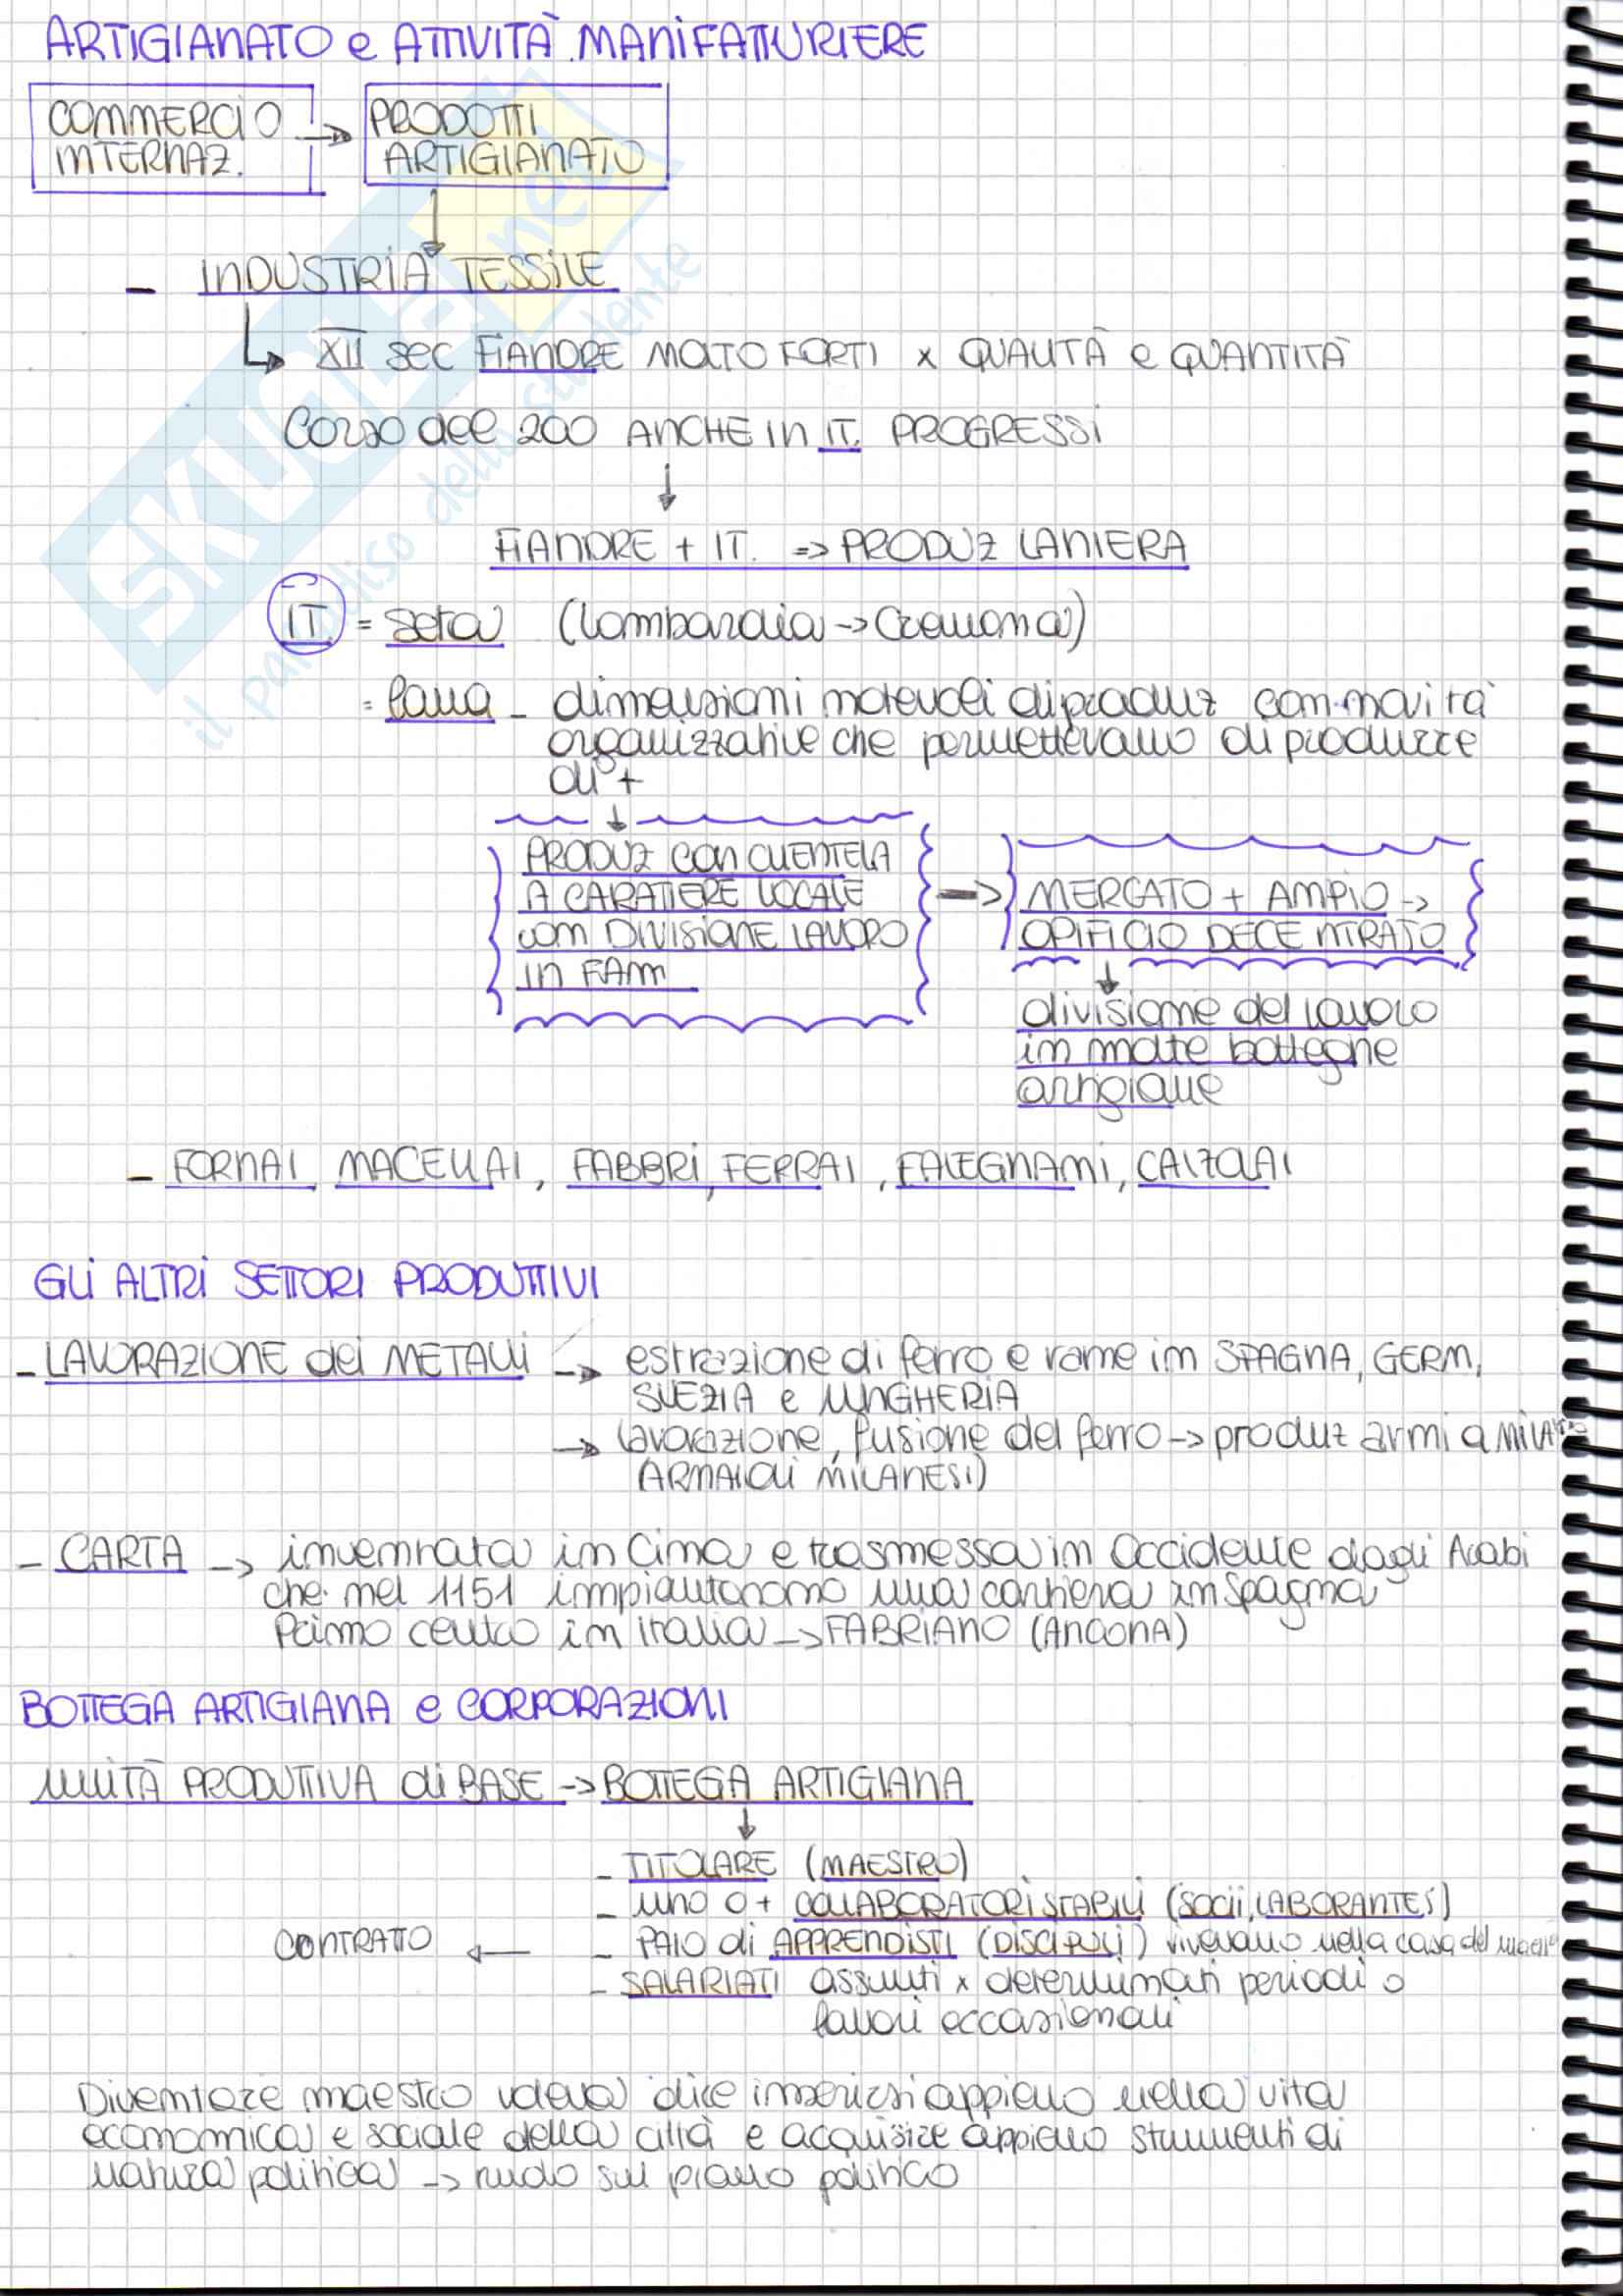 ARTIGIANATO e ATTIVITÀ MANIFATTURIERE
COMMERCIO → PRODOTTI
INTERNAZ. ARTIGIANATO
- INDUSTRIA TESSILE
XII sec FIANDRE MOLTO FORTI x QUALITÀ e QUANTITÀ
Corso del 200 ANCHE IN IT. PROGRESSI
FIANDRE + IT. => PRODUZ LANIERA
IT. = seta (Lombardia -> Cremona)
= lana - dimensioni notevoli di produz con novità
organizzative che permettevano di produrre
di +
PRODUZ CON CLIENTELA
A CARATTERE LOCALE
con DIVISIONE LAVORO
IN FAM
-> MERCATO + AMPIO ->
OPIFICIO DECENTRATO
divisione del lavoro
in molte botteghe
artigiane
- FORNAI, MACELLAI, FABBRI, FERRAI, FALEGNAMI, CALZOLAI
GLI ALTRI SETTORI PRODUTTIVI
- LAVORAZIONE dei METALLI -> estrazione di ferro e rame in SPAGNA, GERM,
SVEZIA e UNGHERIA
-> lavorazione, fusione del ferro -> produz armi a MILANO
(ARMAIOLI MILANESI)
- CARTA -> inventata in Cina e trasmessa in Occidente dagli Arabi
che nel 1151 impiantarono una cartiera in Spagna
Primo centro in Italia -> FABRIANO (ANCONA)
BOTTEGA ARTIGIANA e CORPORAZIONI
UNITÀ PRODUTTIVA di BASE -> BOTTEGA ARTIGIANA
- TITOLARE (MAESTRO)
- UNO O + COLLABORATORI STABILI (SOCII, LABORANTES)
CONTRATTO <- - PAIO di APPRENDISTI (DISCIPULI) vivevano nella casa del maestro
- SALARIATI assunti x determinati periodi o
lavori occasionali
Diventare maestro voleva dire inserirsi appieno nella vita
economica e sociale della città e acquisire appieno strumenti di
natura politica -> ruolo sul piano politico
SKUOLA.net
il paradiso dello studente